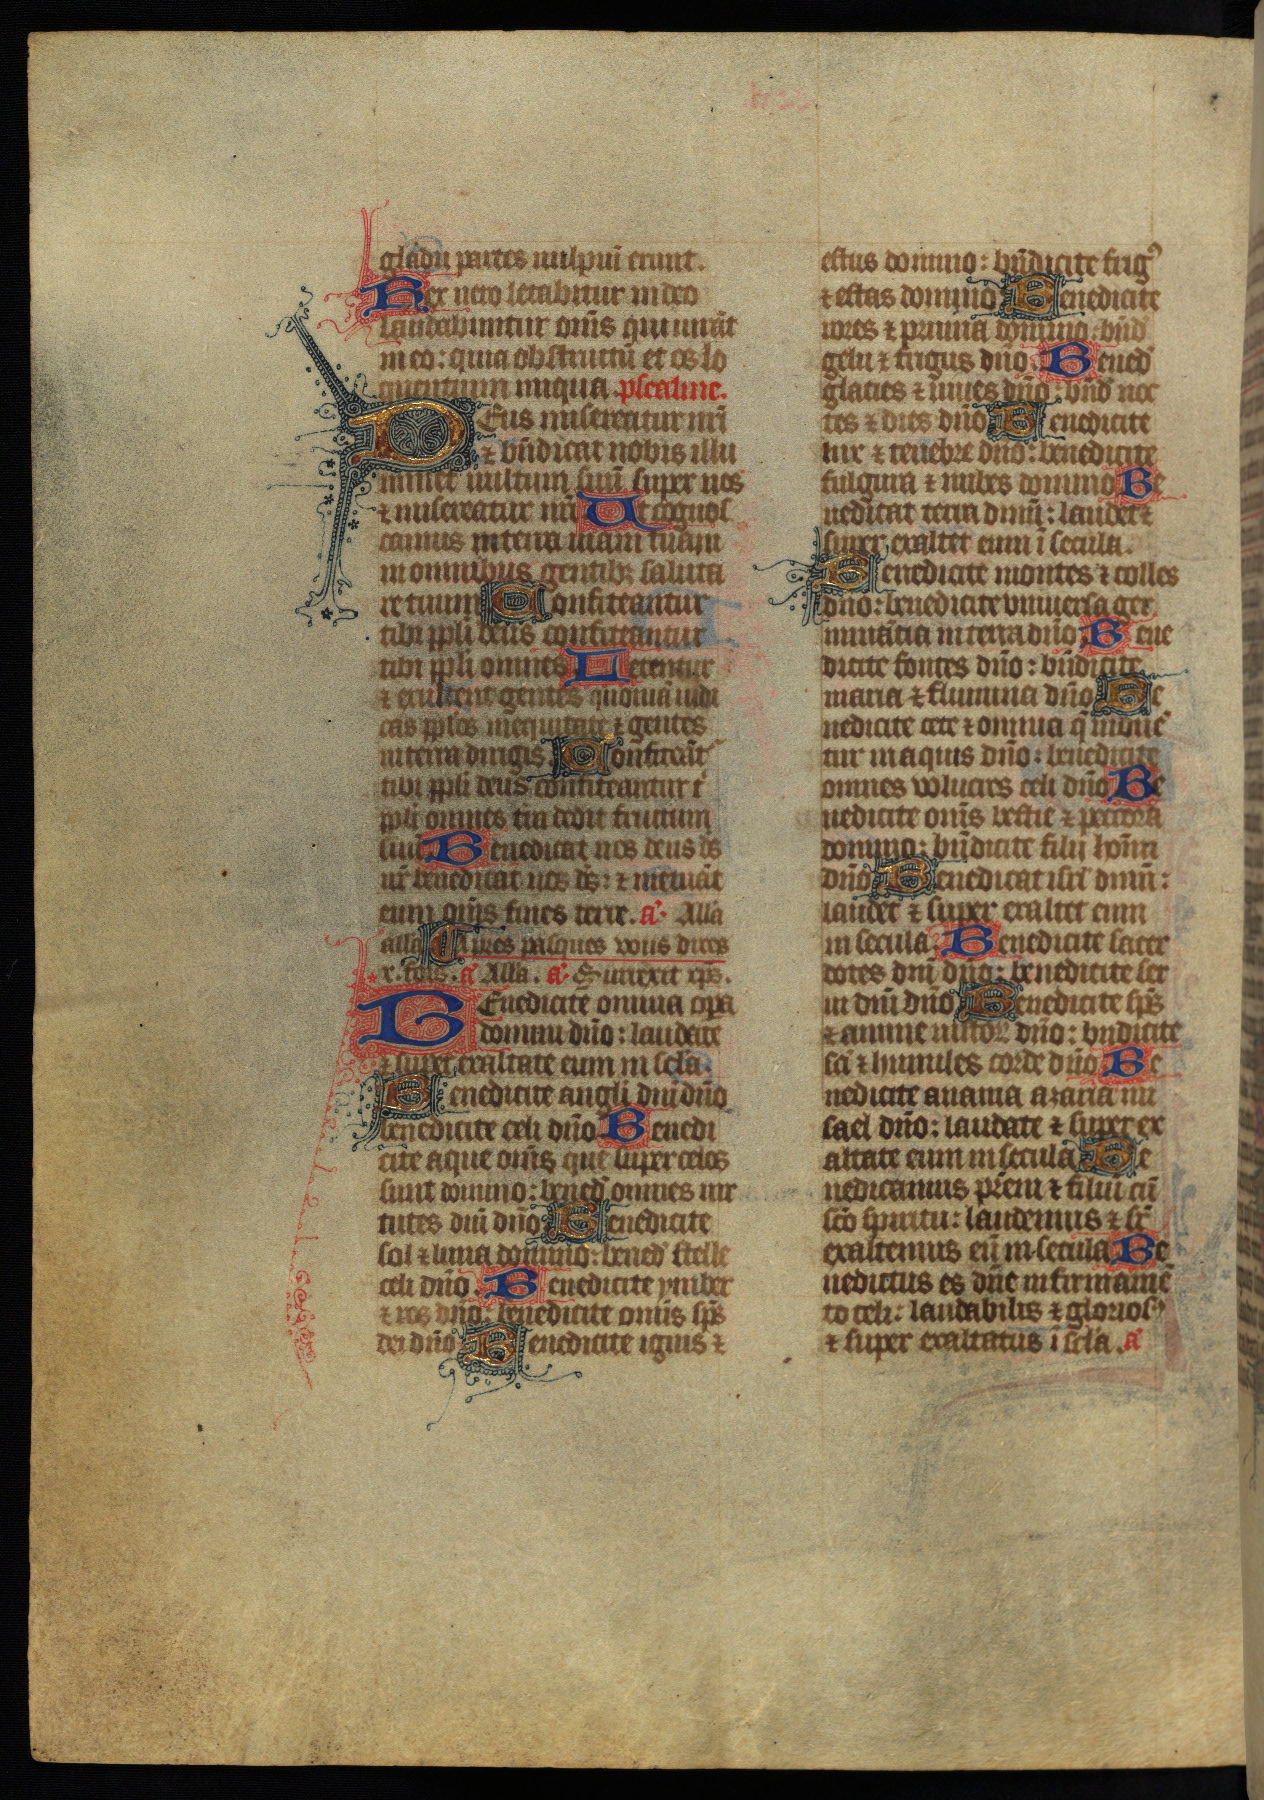 gladii partes uulpiū erunt.
Rex uero letabitur in deo
laudabuntur om̄s qui iurāt
in eo: quia obstructū est os lo
quentium iniqua. psealme.
Deus misereatur nr̄i
⁊ bn̄dicat nobis illu
minet uultum suū super nos
⁊ misereatur nr̄i Ut cognos
camus in terra uiam tuam
in omnibus gentibꝫ saluta
re tuum Confiteantur
tibi ppl̄i deus confiteantur
tibi ppl̄i omnes Letentur
⁊ exultent gentes quoniā iudi
cas ppl̄os in equitate ⁊ gentes
in terra dirigis. Confiteāt᷑
tibi ppl̄i deus confiteantur t᷑
ppl̄i omnes t̄ra dedit fructum
suū Benedicat nos deus ds̄
nr̄ benedicat nos ds̄: ⁊ metuāt
eum om̄s fines terre. a᷑. All̄a
all̄a Apres pasques vous dires
a᷑ All̄a. a᷑. Surrexit xp̄s.
Benedicite omnia opa
domini dn̄o: laudate
⁊ super exaltate eum in scl̄a.
Benedicite angl̄i dn̄i dn̄o
benedicite celi dn̄o Benedi
cite aque om̄s que super celos
sunt domino: bened᷑ omnes uir
tutes dn̄i dn̄o Benedicite
sol ⁊ luna domino: bened᷑ stelle
celi dn̄o. Benedicite ymber
⁊ ros dn̄o: benedicite om̄s sp̄s
dei dn̄o Benedicite ignis ⁊
estus domino: bn̄dicite frigꝰ
⁊ estas domino Benedicite
rores ⁊ pruina domino: bn̄d᷑
gelu ⁊ frigus dn̄o. Bened᷑
glacies ⁊ niues dn̄o: bn̄d᷑ noc
tes ⁊ dies dn̄o Benedicite
lux ⁊ tenebre dn̄o: benedicite
fulgura ⁊ nubes domino Be
nedicat terra dn̄m: laudet ⁊
super exaltet eum ī secula.
Benedicite montes ⁊ colles
dn̄o: benedicite vniuersa ger
minātia in terra dn̄o Bene
dicite fontes dn̄o: bn̄dicite
maria ⁊ flumina dn̄o Be
nedicite cete ⁊ omnia q̄ mouē
tur in aquis dn̄o: benedicite
omnes volucres celi dn̄o Be
nedicite om̄s bestie ⁊ peccora
domino: bn̄dicite filii hom̄
dn̄o Benedicat isrl̄ dn̄m:
laudet ⁊ super exaltet eum
in secula. Benedicite sacer
dotes dn̄i dn̄o: benedicite ser
ui dn̄i dn̄o Benedicite sp̄s
⁊ anime iustoꝝ dn̄o: bn̄dicite
sc̄i ⁊ humiles corde dn̄o Be
nedicite anania azaria mi
sael dn̄o: laudate ⁊ super ex
altate eum in secula Be
nedicamus pr̄em ⁊ filiū cū
sc̄o spiritu: laudemus ⁊ sr̄
exaltemus eū in secula Be
nedictus es dn̄e in firmamē
to celi: laudabilis ⁊ gloriosꝰ
⁊ super exaltatus ī scl̄a. a᷑